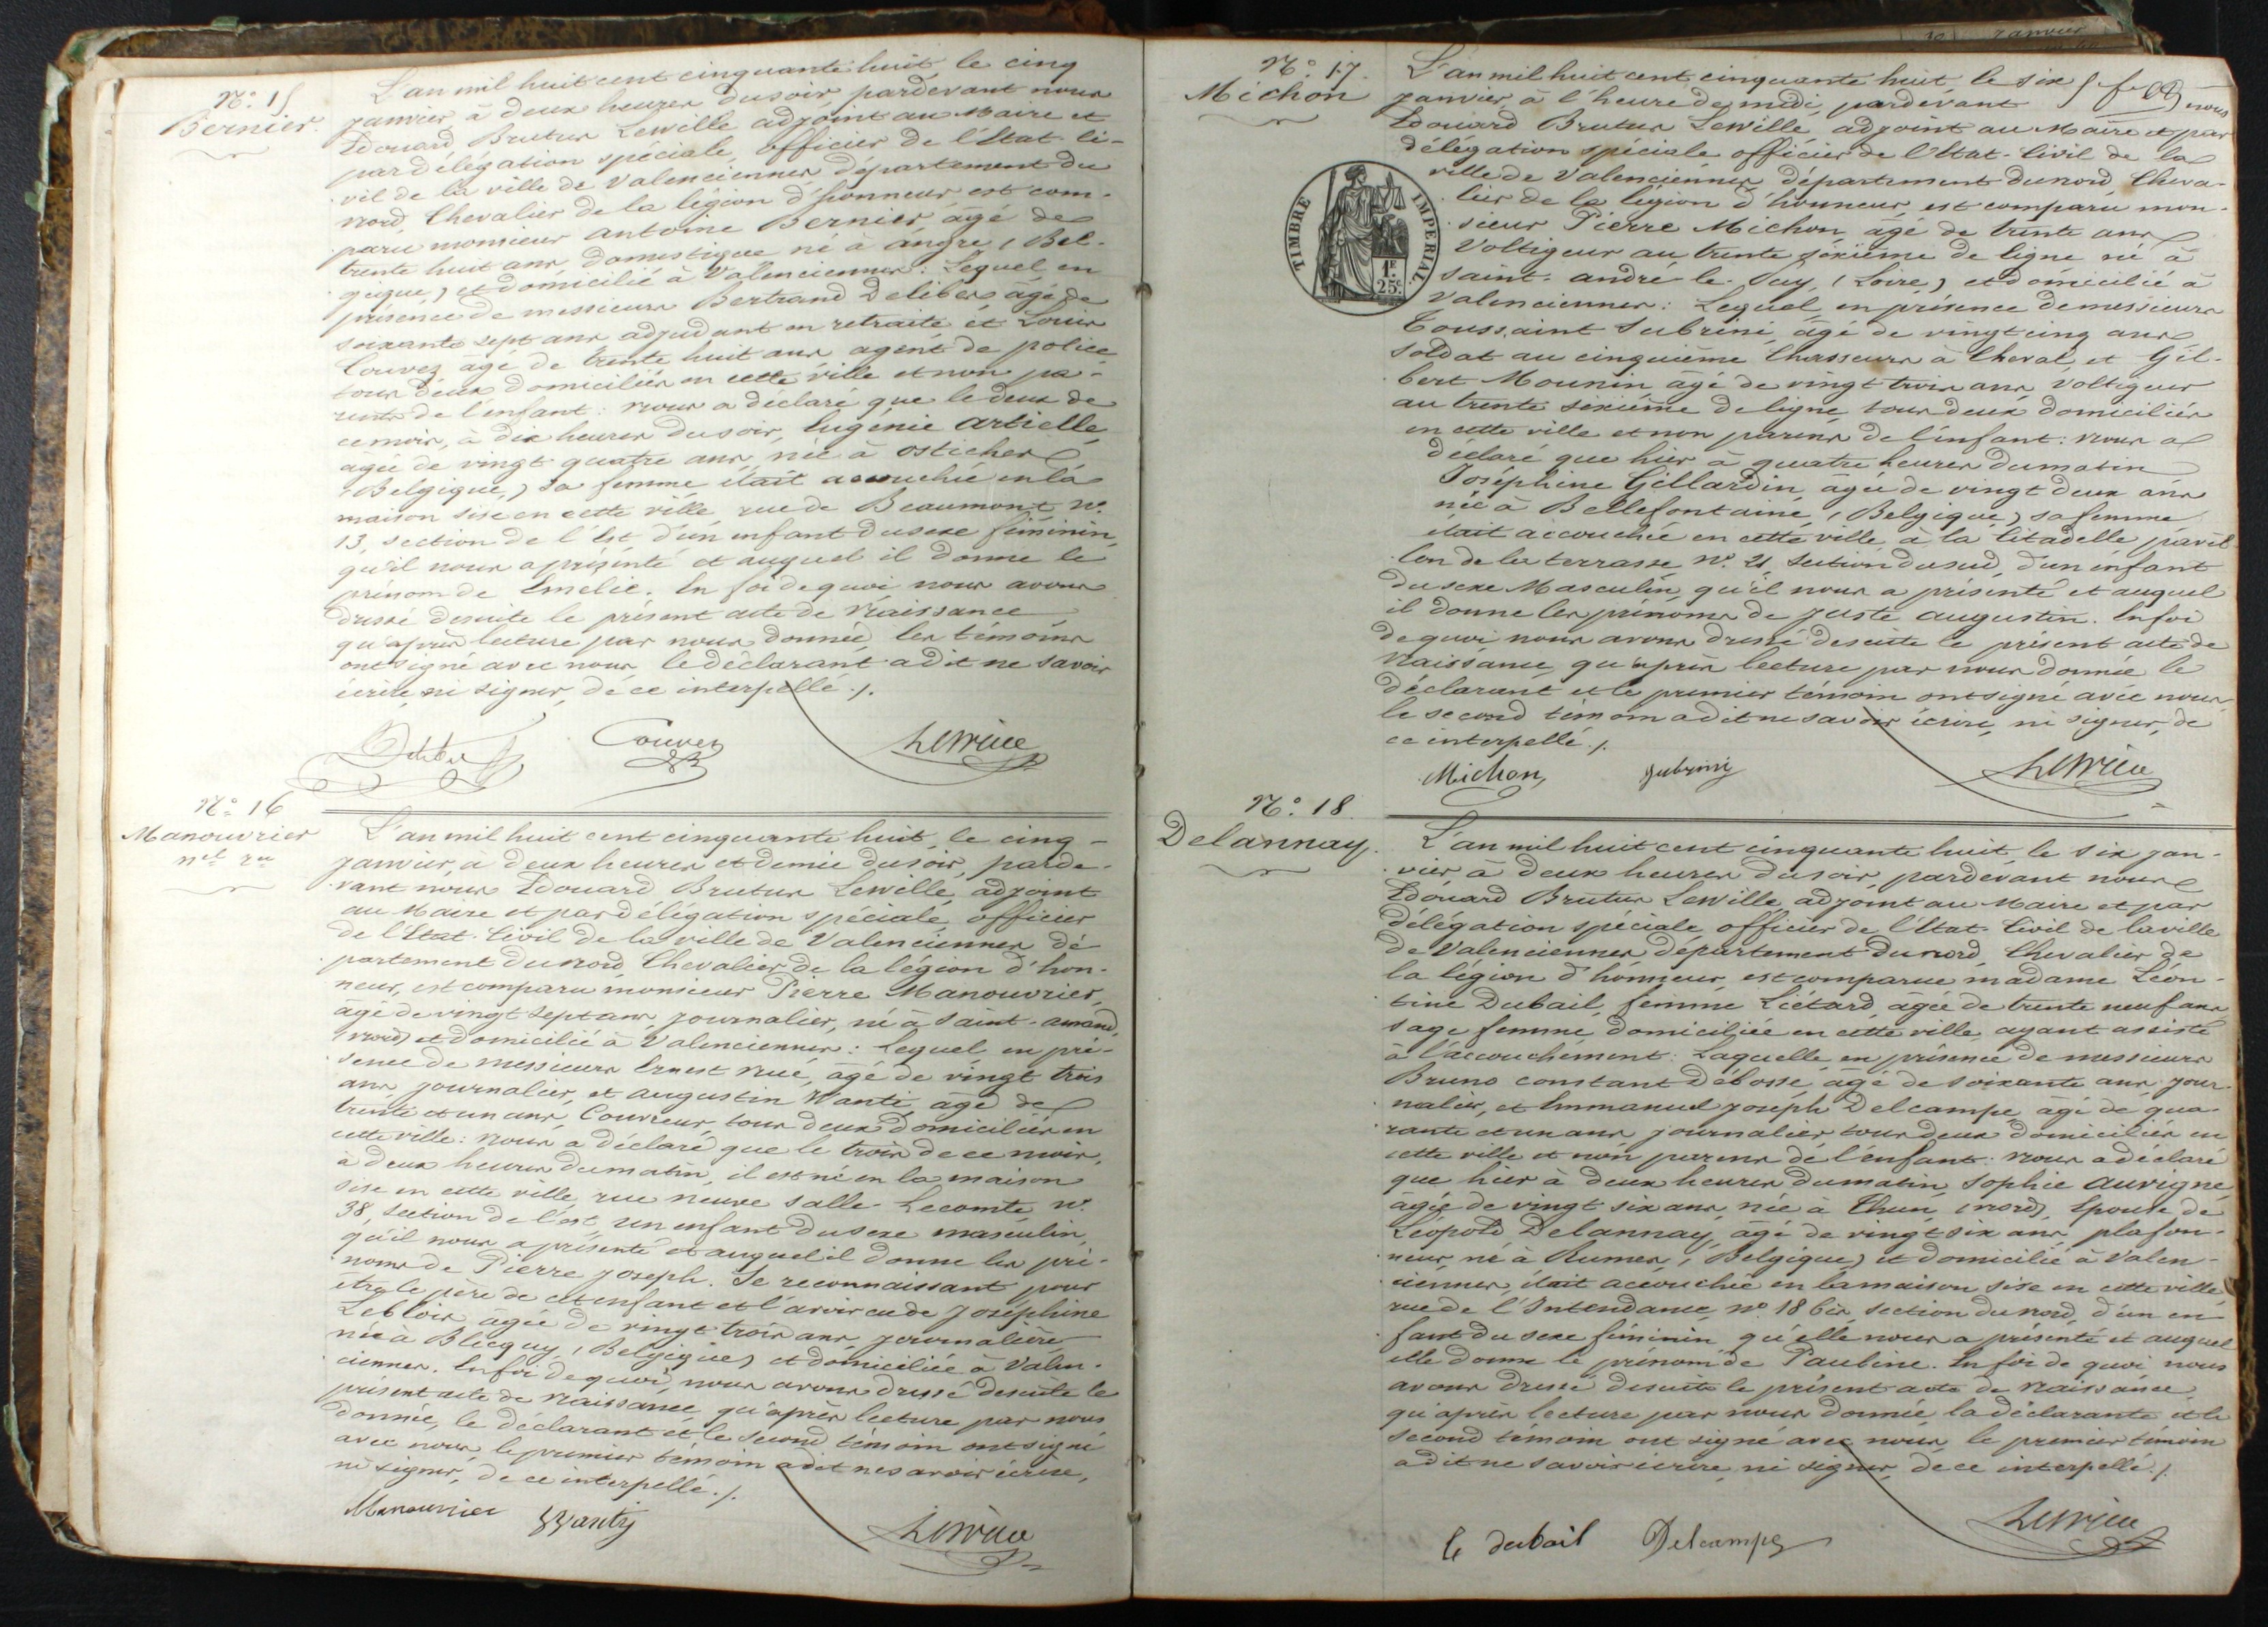 N.° 15
Bernier.
L'an mil huit cent cinquante huit, le cinq
janvier à deux heures du soir, pardevant nous
Edouard Brutus Lewille adjoint au Maire et
par délégation spéciale, officier de l'Etat-Ci-
vil de la ville de Valenciennes département du
nord, Chevalier de la légion d'honneur, est com-
paru monsieur antoine Bernier, âgé de
trente huit ans, domestique né à angre, (Bel-
gique,) et domicilié à Valenciennes: Lequel, en
présence de messieurs Bertrand Deliber âgé de
soixante sept ans adjudant en retraite et Louis
Couvez âgé de trente huit ans agent de police
tous deux domiciliés en cette ville et non pa-
rents de l'enfant: nous a déclaré que le deux de
ce mois, à dix heures du soir, Eugénie Artielle,
âgée de vingt quatre ans, née à osticher
(Belgique,) sa femme, était accouchée en la
maison sise en cette ville, rue de Beaumont, n.°
13, section de l'Est, d'un enfant du sexe féminin,
qu'il nous a présenté et auquel il donne le
prénom de Emelie. En foi de quoi nous avons
dressé desuite le présent acte de naissance
qu'après lecture par nous donnée, les témoins
ont signé avec nous, le déclarant a dit ne savoir
écrire, ni signer, de ce interpellé./.
Deliber Couvez Lewille
N.° 16
Manouvrier
n.el r.u
L'an mil huit cent cinquante huit, le cinq
janvier, à deux heures et demie du soir, parde-
vant nous Edouard Brutus Lewille, adjoint
au Maire et par délégation spéciale, officier
de l'Etat-Civil de la ville de Valenciennes dé-
partement du nord, Chevalier de la légion d'hon-
neur, est comparu monsieur Pierre Manouvrier,
âgé de vingt sept ans, journalier, né à Saint-amand,
(nord) et domicilié à Valenciennes: Lequel, en pré-
sence de messieurs Ernest Rué, âgé de vingt trois
ans, journalier, et augustin Wanti, âgé de
trente et un ans, Couvreur, tous deux domiciliés en
cette ville: nous a déclaré que le trois de ce mois,
à deux heures du matin, il est né en la maison
sise en cette ville rue neuve salle-Lecomte, n.°
38, section de l'est, un enfant du sexe masculin,
qu'il nous a présenté et auquel il donne les pré-
noms de Pierre Joseph. Se reconnaissant pour
être le père de cet enfant et l'avoir eu de Joséphine
Leblois, âgée de vingt trois ans, journalière,
née à Blicquy, (Belgique) et domiciliée à Valen-
ciennes. En foi de quoi, nous avons dressé desuite le
présent acte de naissance, qu'après lecture par nous
donnée, le déclarant et le second témoin ont signé
avec nous, le premier témoin a dit ne savoir écrire,
ni signer, de ce interpellé./.
Manouvrier Wanty Lewille
N.° 17.
Michon
L'an mil huit cent cinquante huit, le six
janvier, à l'heure de midi, pardevant nous
Edouard Brutus Lewille, adjoint au Maire et par
délégation spéciale officier de l'Etat-Civil de la
ville de Valenciennes, département du nord, Cheva-
lier de la légion d'honneur, est comparu mon-
sieur Pierre Michon, âgé de trente ans
Voltigeur au trente sixième de ligne né à
Saint-andré-le-Puy, (Loire,) et domicilié à
Valenciennes: Lequel, en présence de messieurs
Toussaint Subrini, âgé de vingt cinq ans
soldat au cinquième Chasseurs à Cheval, et Gil-
bert Mounin âgé de vingt trois ans, voltigeur
au trente sixième de ligne, tous deux domiciliés
en cette ville et non parents de l'enfant: nous a
déclaré que hier à quatre heures du matin
Joséphine Gillardin, âgée de vingt deux ans
née à Bellefontaine, (Belgique,) sa femme
était accouchée en cette ville, à la Citadelle, pavil-
lon de la terrasse n.° 21, section du sud, d'un enfant
du sexe Masculin, qu'il nous a présenté et auquel
il donne les prénoms de Juste augustin. En foi
de quoi nous avons dressé desuite le présent acte de
Naissance, qu'après lecture par nous donnée le
déclarant et le premier témoin ont signé avec nous,
le second témoin a dit ne savoir écrire, ni signer, de
ce interpellé./.
Michon, Subrini Lewille
TIMBRE IMPERIAL
1F
25c
N.° 18.
Delannay.
L'an mil huit cent cinquante huit, le six jan-
vier à deux heures du soir, pardevant nous
Edouard Brutus Lewille, adjoint au Maire et par
délégation spéciale, officier de l'Etat-Civil de la ville
de Valenciennes, département du nord, Chevalier de
la légion d'honneur, est comparue madame Léon-
tine Dubail, femme Liétard, âgée de trente neuf ans
sage femme, domiciliée en cette ville, ayant assisté
à l'accouchement: Laquelle, en présence de messieurs
Bruno constant Débosse, âgé de soixante ans, jour-
nalier, et Emmanuel joseph Delcampe âgé de qua-
rante et un ans, journalier, tous deux domiciliés en
cette ville et non parents de l'enfant: nous a déclaré
que hier à deux heures du matin, Sophie Auvigne,
âgée de vingt six ans, née à Thun, (nord), épouse de
Léopold Delannay, âgé de vingt six ans, plafon-
neur, né à Rumes, (Belgique) et domicilié à Valen-
ciennes, était accouchée en la maison sise en cette ville
rue de l'Intendance, n° 18 bis, section du nord, d'un en-
fant du sexe féminin, qu'elle nous a présenté et auquel
elle donne le prénom de Pauline. En foi de quoi nous
avons dressé desuite le présent acte de naissance,
qu'après lecture par nous donnée, la déclarante et le
second témoin ont signé avec nous, le premier témoin
a dit ne savoir écrire, ni signer, de ce interpellé./.
L dubail Delcampe Lewille
janvier